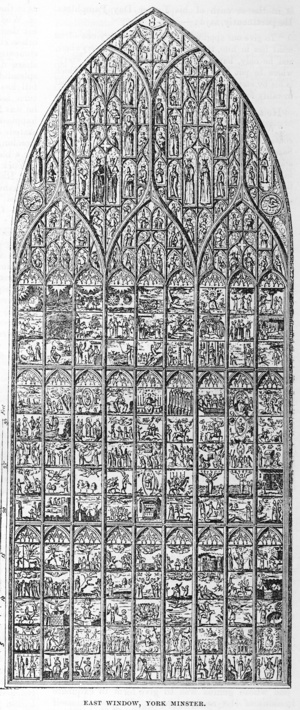 EAST WINDOW, YORK MINSTER.